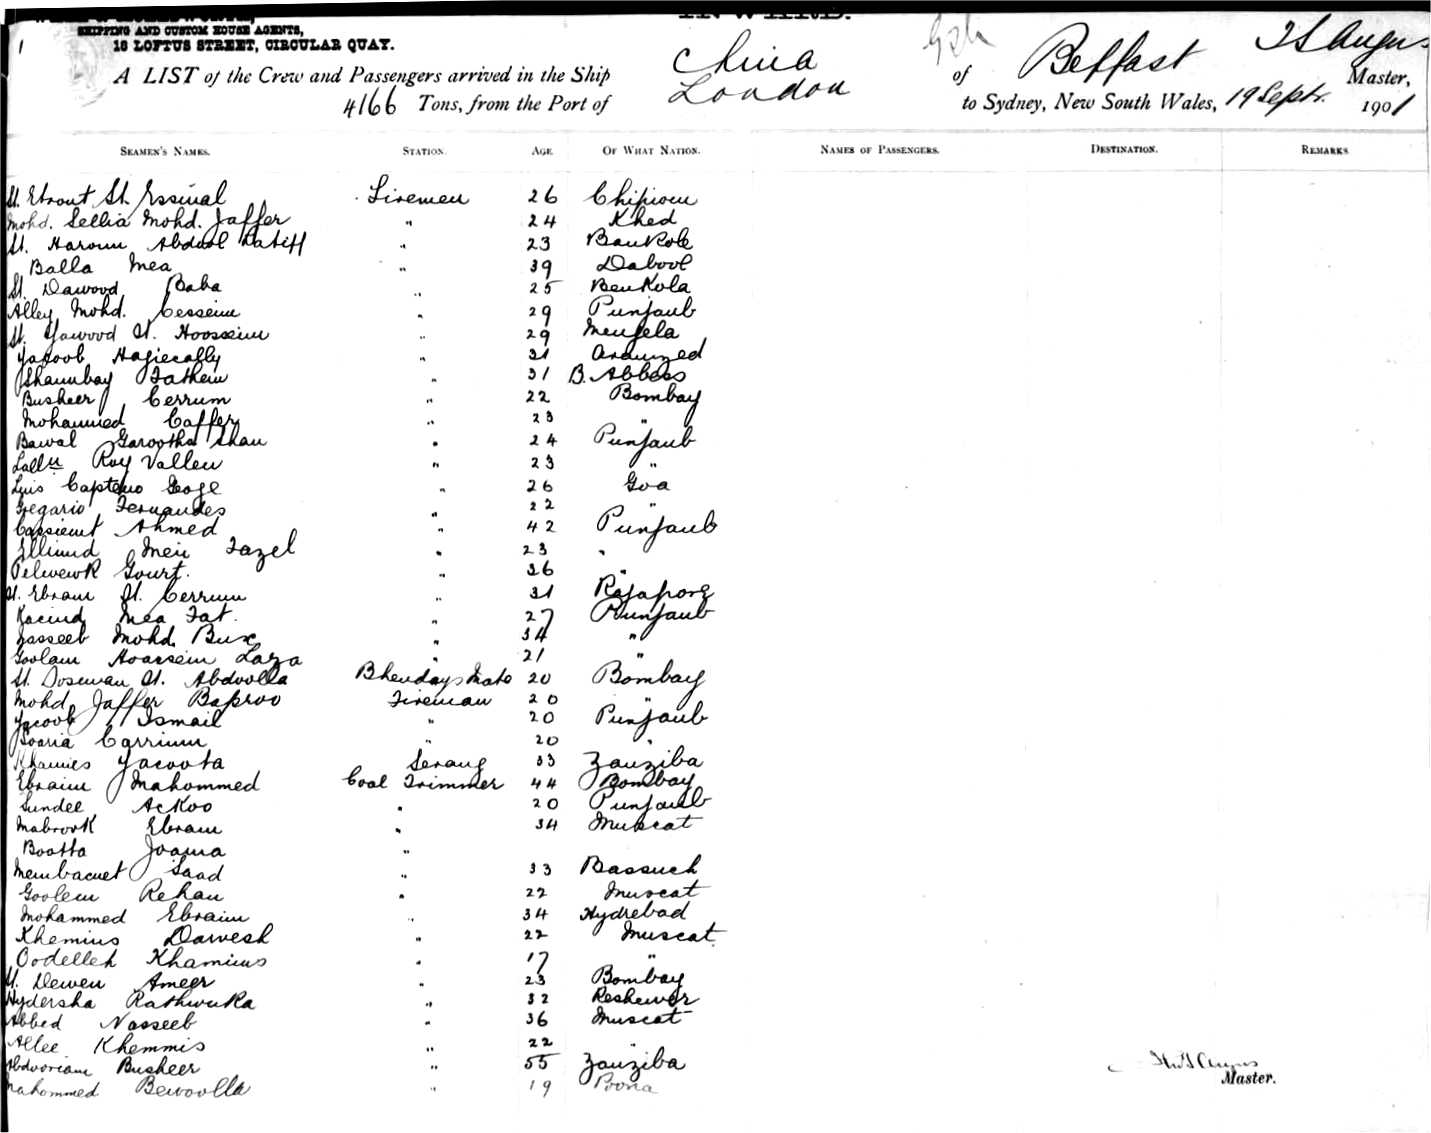 INWARD.
SHIPPING AND CUSTOM HOUSE AGENTS,
16 LOFTUS STREET, CIRCULAR QUAY.
A LIST of the Crew and Passengers arrived in the Ship China of Belfast Master,
4166 Tons, from the Port of London to Sydney, New South Wales, 19 Septr. 1901
SEAMEN'S NAMES. STATION. AGE. OF WHAT NATION. NAMES OF PASSENGERS. DESTINATION. REMARKS
St. Firemen 26
Mohd. Sellia Mohd. Jaffer " 24 Khed
St. Haroun Abdool Latiff " 23 Bankole
Balla Mea " 39 Dabool
St. Dawood Baba " 25 Benkola
Alley Mohd. Cesseim " 29 Punjaub
St. Yawood St. Hoossein " 29
Yacoob Hajiecally " 31
Shaumbay Fathem " 31 B. Abbass
Busheer Cerrum " 22 Bombay
Mohammed Caffer " 23 "
Bawal Garootha Khan " 24 Punjaub
Lall Roy Vallen " 23 "
Luis Goa " 26
Gregario Fernandes " 22 "
Ahmed " 42 Punjaub
Mein Fazel " 23 "
Gourt. " 36 "
St. Ebram St. Cerrum " 31 Rajapore
Mea Fat. " 27 Punjaub
Nasseeb Mohd. Bux " 34 "
Goolam Hoassein Laza " 21 "
St. Doseman St. Abdoolla Bhendarys Mate 20 Bombay
Mohd. Jaffer Baproo Fireman 20 "
Yacoob Ismail " 20 Punjaub
Booria Carrium " 20 "
Khamies Yacoota Serang 33 Zanziba
Ebraim Mahommed Coal Trimmer 44 Bombay
Sundee Ackoo " 20 Punjaub
Mabrook Ebram " 34 Muscat
Bootta Jooma "
Membacuet Saad " 33
Goolem Rehan " 22 Muscat
Mohammed Ebraim " 34 Hydrebad
Khemius Darvesh " 22 Muscat
Oodelleh Khamius " 17 "
St. Dewen Ameer " 23 Bombay
Hydersha " 32 Peshewer
Abbed Nasseeb " 36 Muscat
Allee Khemmis " 22 "
Abdooriam Busheer " 55 Zanziba
Mahommed Bewoolla " 19 Poona
Master.